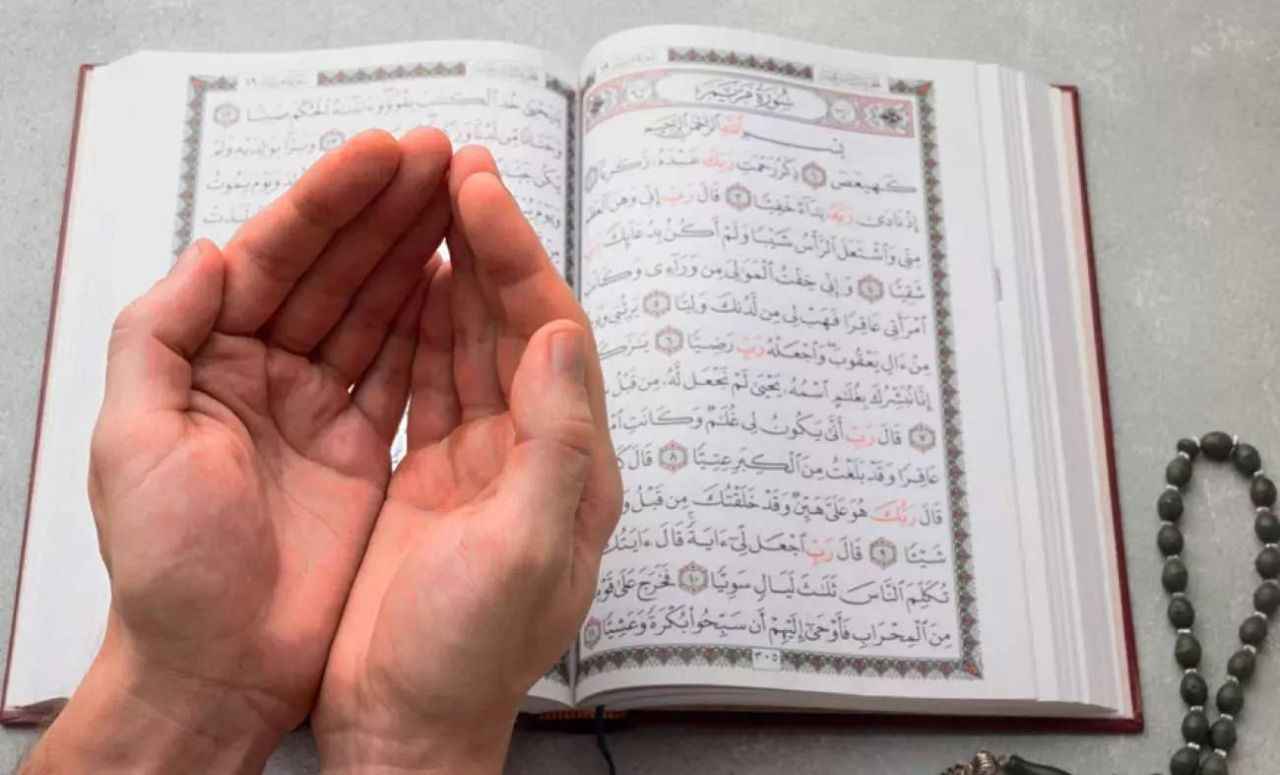 سُورَةُ مَرْيَمَ
بِسْمِ ٱللَّهِ ٱلرَّحْمَٰنِ ٱلرَّحِيمِ
كٓهيعٓصٓ ١ ذِكْرُ رَحْمَتِ رَبِّكَ عَبْدَهُۥ زَكَرِيَّآ
إِذْ نَادَىٰ رَبَّهُۥ نِدَآءً خَفِيًّا ٣ قَالَ رَبِّ إِنِّى وَهَنَ ٱلْعَظْمُ
مِنِّى وَٱشْتَعَلَ ٱلرَّأْسُ شَيْبًا وَلَمْ أَكُنۢ بِدُعَآئِكَ
شَقِيًّا ٤ وَإِنِّى خِفْتُ ٱلْمَوَٰلِىَ مِن وَرَآءِى وَكَانَتِ
ٱمْرَأَتِى عَاقِرًا فَهَبْ لِى مِن لَّدُنكَ وَلِيًّا ٥ يَرِثُنِى
مِنْ ءَالِ يَعْقُوبَ وَٱجْعَلْهُ رَبِّ رَضِيًّا ٦
إِنَّا نُبَشِّرُكَ بِغُلَٰمٍ ٱسْمُهُۥ يَحْيَىٰ لَمْ نَجْعَل لَّهُۥ مِن قَبْلُ
٧ قَالَ رَبِّ أَنَّىٰ يَكُونُ لِى غُلَٰمٌ وَكَانَتِ
عَاقِرًا وَقَدْ بَلَغْتُ مِنَ ٱلْكِبَرِ عِتِيًّا ٨ قَالَ
قَالَ رَبُّكَ هُوَ عَلَىَّ هَيِّنٌ وَقَدْ خَلَقْتُكَ مِن قَبْلُ
شَيْـًٔا ٩ قَالَ رَبِّ ٱجْعَل لِّىٓ ءَايَةً قَالَ ءَايَتُكَ
تُكَلِّمَ ٱلنَّاسَ ثَلَٰثَ لَيَالٍ سَوِيًّا ١٠ فَخَرَجَ عَلَىٰ
مِنَ ٱلْمِحْرَابِ فَأَوْحَىٰٓ إِلَيْهِمْ أَن سَبِّحُوا۟ بُكْرَةً وَعَشِيًّا ١١
٣٠٥
يَٰيَحْيَىٰ خُذِ ٱلْكِتَٰبَ بِقُوَّةٍ وَءَاتَيْنَٰهُ ٱلْحُكْمَ صَبِيًّا ١٢
وَحَنَانًا مِّن لَّدُنَّا ١٣ وَبَرًّۢا بِوَٰلِدَيْهِ وَلَمْ
يَكُن وَيَوْمَ يَمُوتُ
وَيَوْمَ